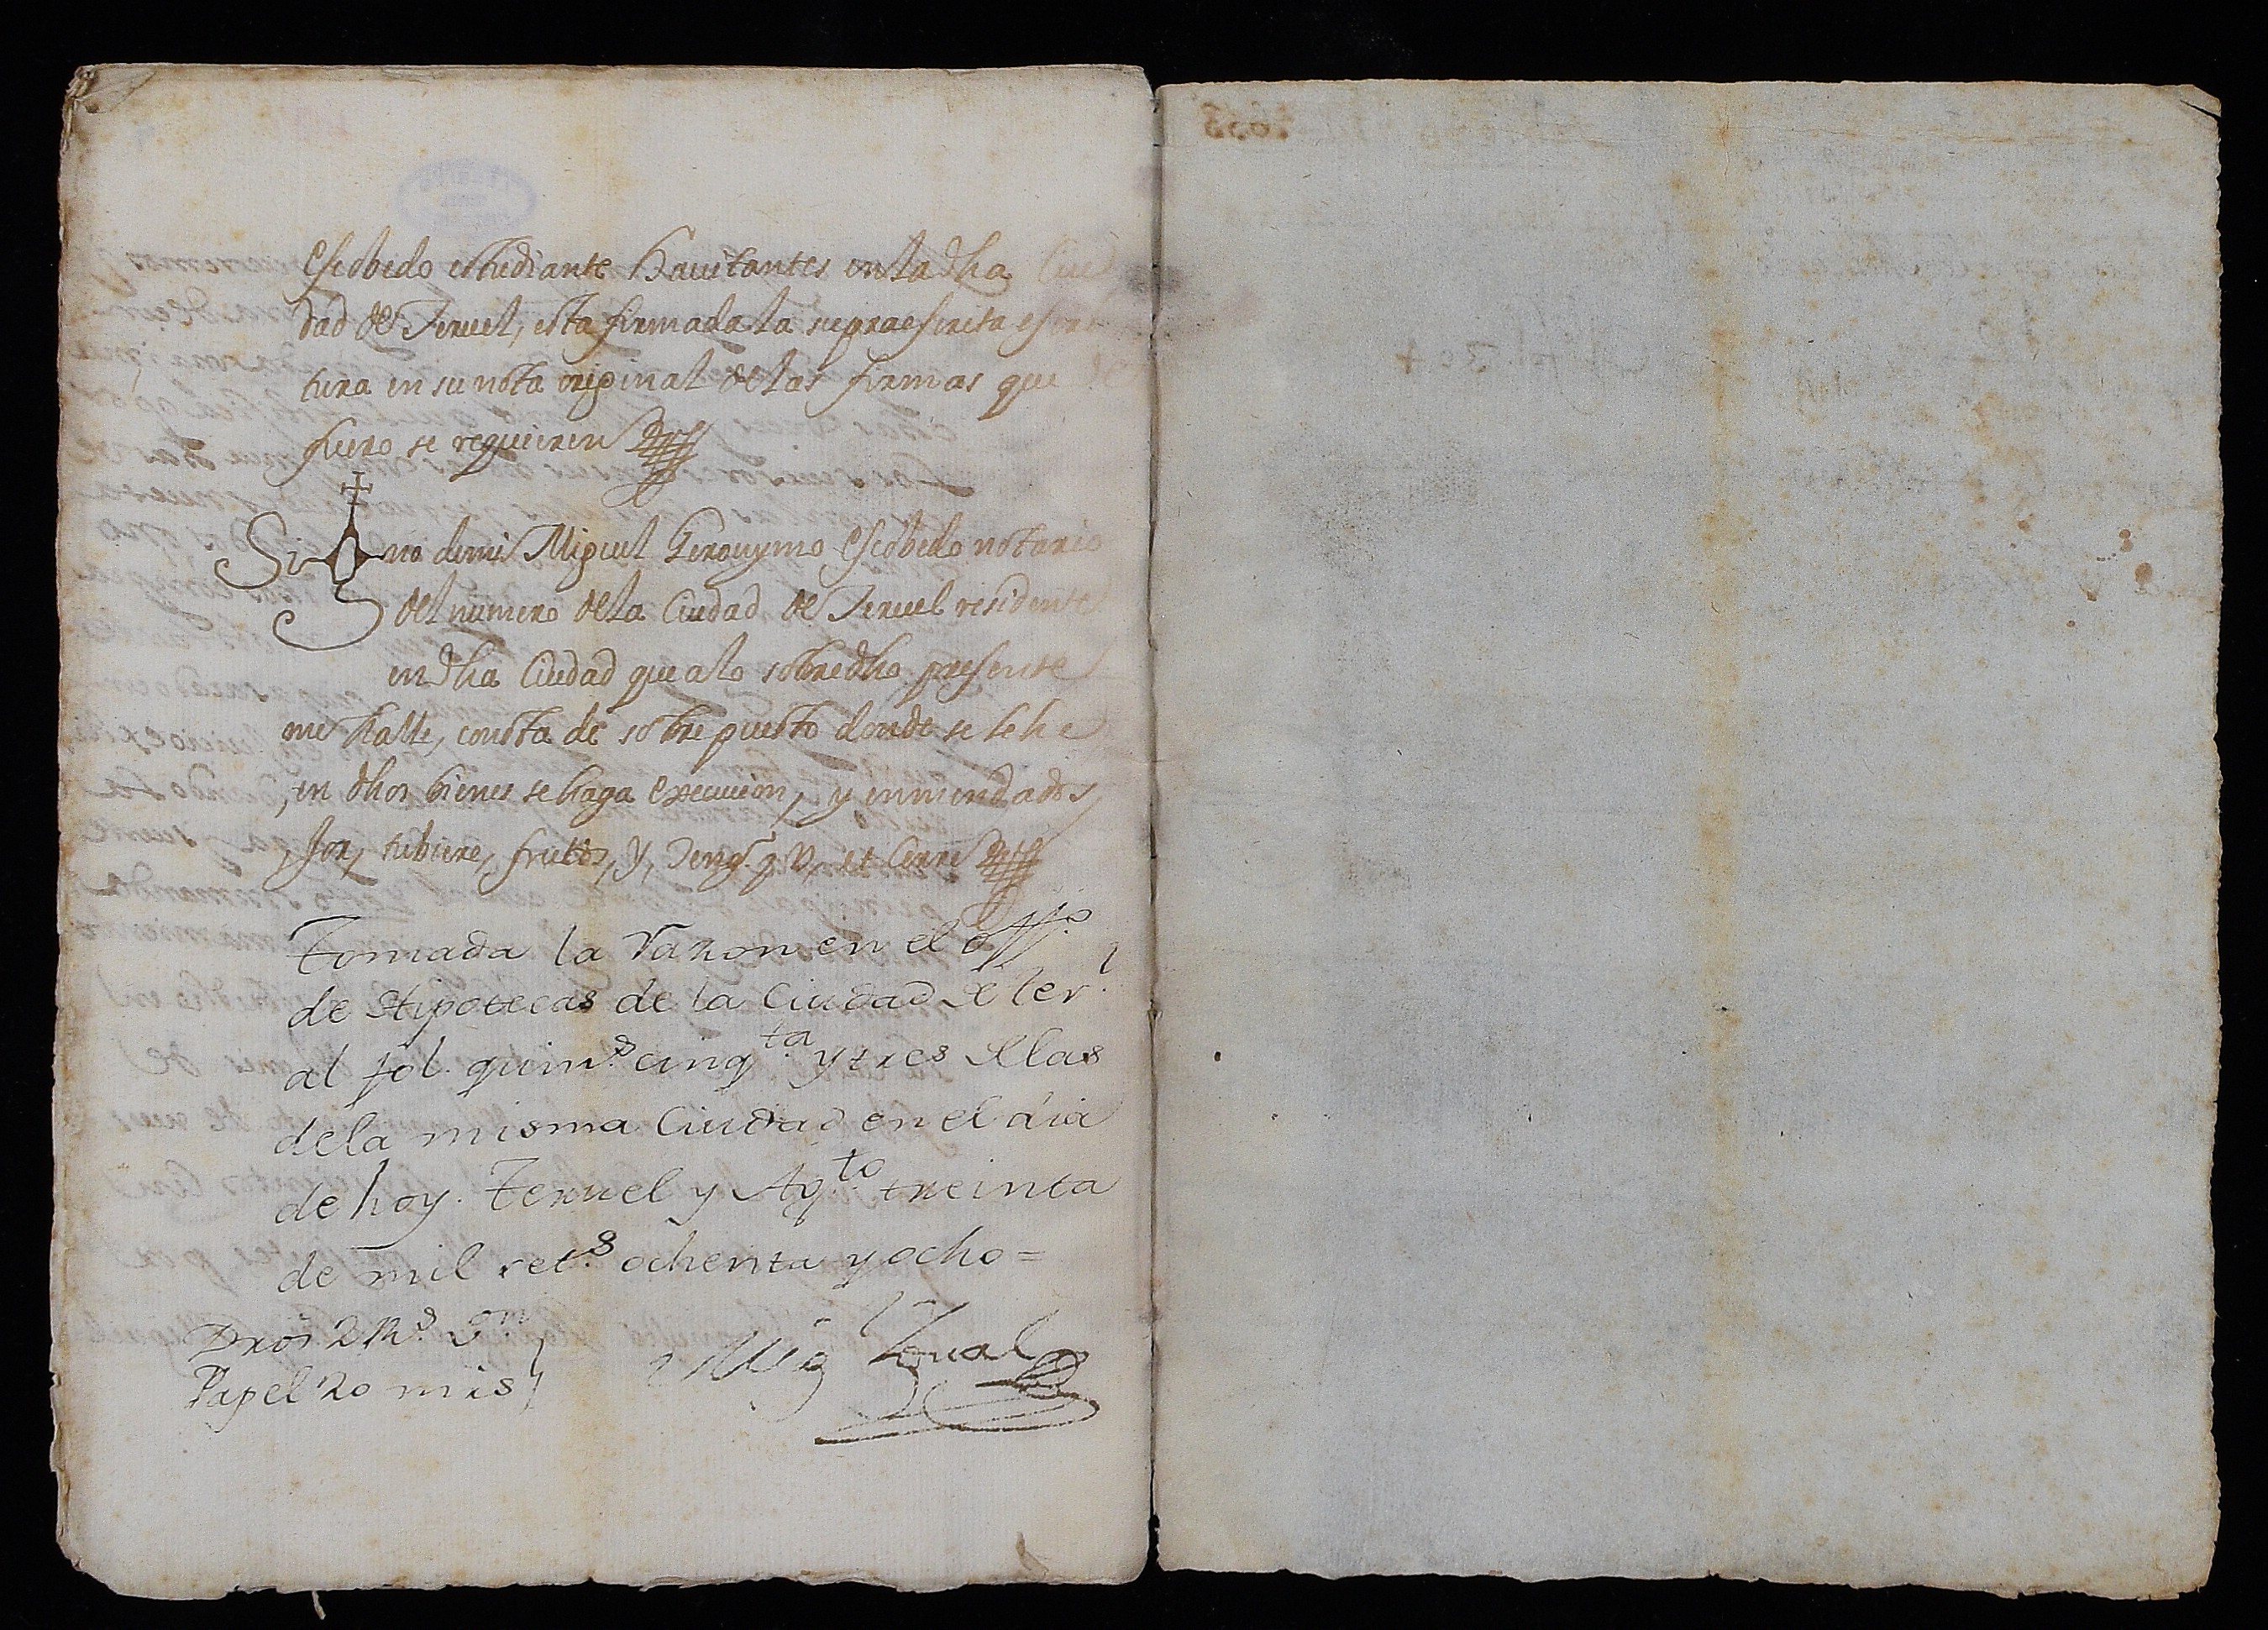 Escobedo estudiante Havitantes en la dha Ciu
dad de Teruel, esta firmada la supraescrita escri
tura en su nota original de las firmas que de
fuero se requieren
Sig no de mi Miguel Geronymo Escobedo notario
del numero de la Ciudad de Teruel residente
en dha Ciudad que a lo sobredho presente
me halle, consta de sobre puesto donde se lehe
, en dhos bienes se haga execucion, y enmendados
, for, tubiere, frutos, y, et Cerre
Tomada la razon en el off.o
de Hipotecas de la Ciudad de Ter.l
al fol. quin.s cinq.ta y tres de las
de la misma Ciudad en el dia
de hoy. Teruel y Ag.to treinta
de mil set.s ochenta y ocho =
Dros 2 Rs. Vn
Papel 20 mrs
Mig